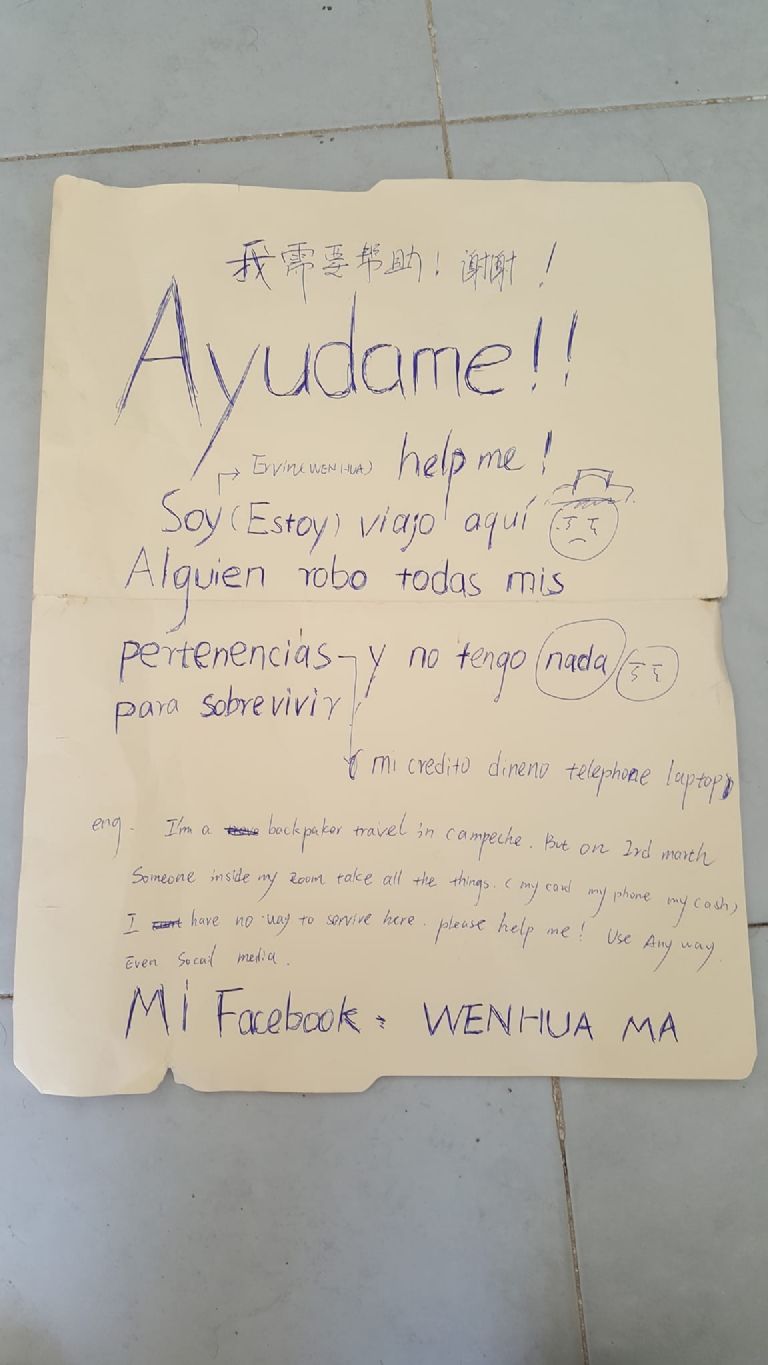 我需要帮助! 谢谢!
Ayudame!!
help me!
Ervin(WENHUA)
Soy (Estoy) viajo aquí
Alguien robo todas mis
pertenencias y no tengo nada
para sobrevivir
mi credito dineno telephone laptop
eng. I'm a backpaker travel in campeche. But on 3rd marth
Someone inside my room take all the things. (my card my phone my cash)
I have no way to servive here. please help me! Use Any way
Even Socail media.
Mi Facebook: WENHUA MA